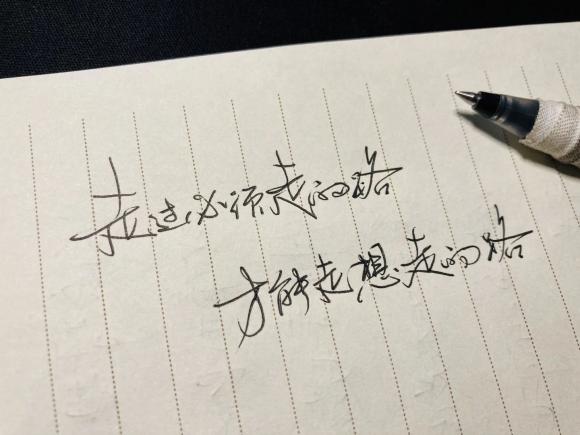 走过必须走的路
才能走想走的路